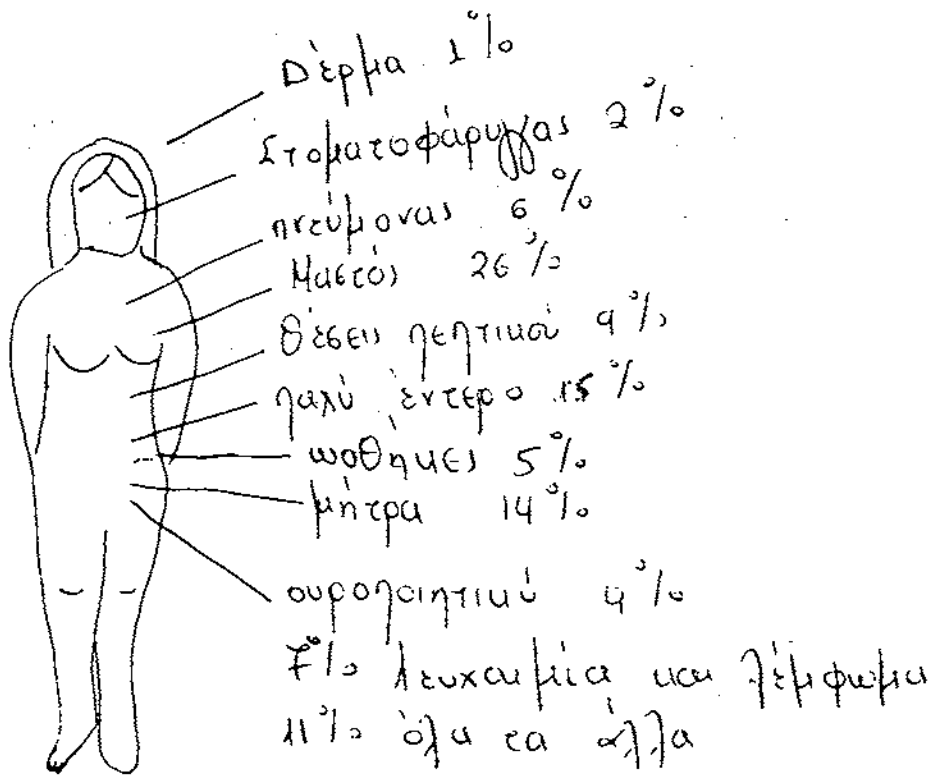 Δέρμα 1%
Στοματοφάρυγγας 2%
πνεύμονας 6%
Μαστός 26%
θέσεις πεπτικού 9%
παχύ έντερο 15%
ωοθήκες 5%
μήτρα 14%
ουροποιητικό 4%
7% λευχαιμία και λέμφωμα
11% όλα τα άλλα